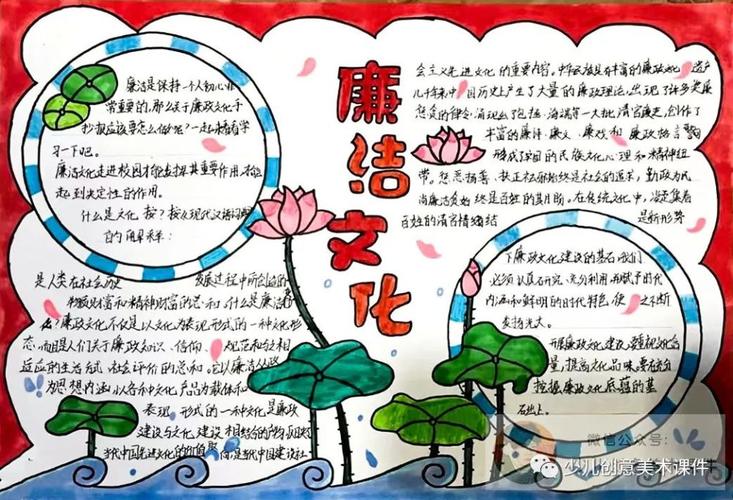 廉洁文化
廉洁是保持一个人初心非
常重要的,那么关于廉政文化手
抄报应该要怎么做呢?一起来看看学
习一下吧。
廉洁文化走进校园才能发挥其重要作用,才能
起到决定性的作用。
什么是文化
按现代汉语词典
的解释:
是人类在社会历史
发展过程中所创造的
物质财富和精神财富的总和,什么是廉洁
么?廉政文化不仅是以文化为表现形式的一种文化形
态,而且是人们关于廉政知识、信仰、
规范和与之相
适应的生活方式、社会评价的总和。它以廉洁从政
为思想内涵,以各种文化产品为载体和
表现形式的一种文化是廉政
建设与文化建设相结合的产物,
当代中国先进文化的
是当代中国建设社
会主义先进文化的重要内容。中华民族具有丰富的廉政文化遗产
几千年来中国历史产生了大量的廉政理论,出现了许多奖廉
惩贪的律令,涌现出了包拯、海瑞等一大批清官廉吏,创作了
丰富的廉诗、廉文、廉戏和廉政格言警句
形成了我国的民族文化心理和精神纽
带。惩恶扬善、扶正祛邪始终是社会的追求,勤政为民
尚廉洁贪始终是百姓的期盼。在传统文化中,凝定集着
百姓的清官情结
是新形势
下廉政文化建设的基石,我们
必须认真研究、充分利用,并赋予时代
内涵和鲜明的时代特色,使之不断
发扬光大。
开展廉政文化建设,强视文化含
量,提高文化品味,要在充分
挖掘廉政文化底蕴的基
础上。
微信公众号:
少儿创意美术课件